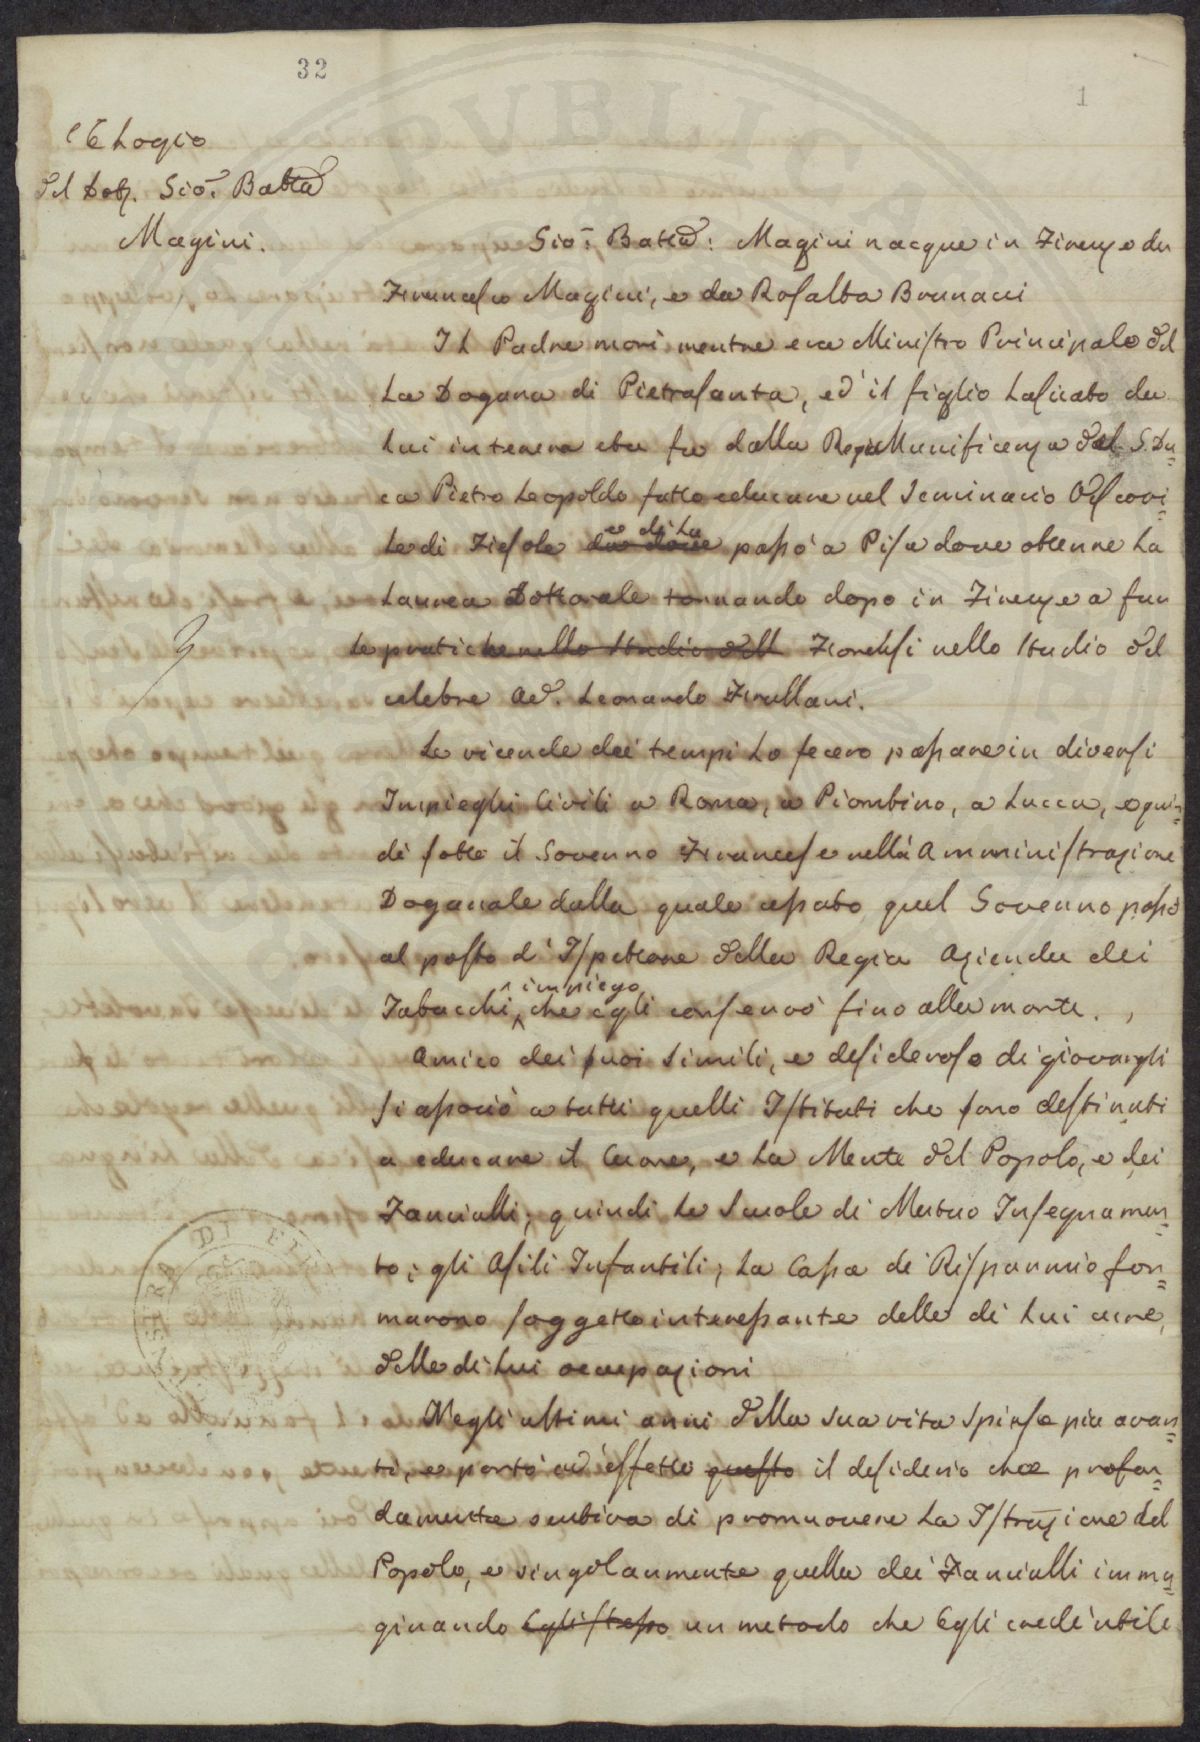 32
1
Elogio
del Dott. Gio: Batta
Magini.
Gio: Batta: Magini nacque in Firenze da
Francesco Magini, e da Rosalba Brunacci
Il Padre morì mentre era Ministro Principale del
la Dogana di Pietrasanta, ed il figlio lasciato da
lui in tenera età fu dalla Regia Munificenza del G. Du=
ca Pietro Leopoldo fatto educare nel Seminario Vescovi=
le di Fiesole da dove e di là passò a Pisa dove ottenne la
Laurea Dottorale tornando dopo in Firenze a fare
le pratiche nello Studio dell Forensi nello Studio del
celebre Avv. Leonardo Frullani.
Le vicende dei tempi lo fecero passare in diversi
Impieghi Civili a Roma, a Piombino, a Lucca, e quin=
di sotto il Governo Francese nella Amministrazione
Doganale dalla quale cessato quel Governo passò
al posto d'Ispettore della Regia Azienda dei
Tabacchi, impiego che egli conservò fino alla morte.
Amico dei suoi simili, e desideroso di giovargli
si associò a tutti quelli Istituti che sono destinati
a educare il Cuore, e la Mente del Popolo, e dei
Fanciulli; quindi le Scuole di Mutuo Insegnamen=
to; gli Asili Infantili; la Cassa di Risparmio for=
marono soggetto interessante delle di lui cure,
delle di lui occupazioni
Negli ultimi anni della sua vita spinse più avan=
ti, e portò ad effetto questo il desiderio che profon=
damente sentiva di promuovere la Istruzione del
Popolo, e singolarmente quella dei Fanciulli imma=
ginando Egli stesso un metodo che Egli credè utile